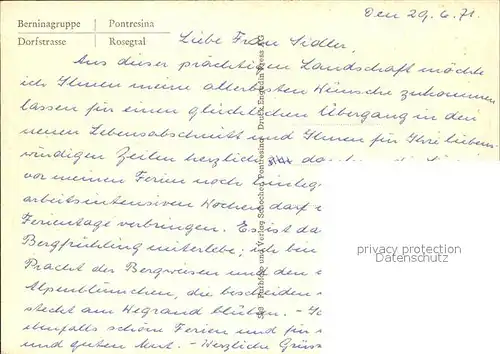 Berninagruppe | Pontresina
Dorfstrasse | Rosegtal
Den 29.6.71.
Liebe Frau Sidler,
Aus dieser prächtigen Landschaft möchte
ich Ihnen meine allerbesten Wünsche zukommen
lassen für einen glücklichen Übergang in den
neuen Lebensabschnitt und Ihnen für Ihre liebens-
würdigen Zeilen herzlich
vor meinen Ferien noch
arbeitsintensiven Wochen darf
Ferientage verbringen. Es ist
Bergfrühling miterlebe, ich bin
Pracht der Bergwiesen und den
Alpenblümchen, die bescheiden
steckt am Wegrand blühen. -
ebenfalls schöne Ferien und für
und guten Mut. - Herzliche Grüss
Farbfoto und Verlag Schocher, Pontresina, Druck Engadin Press AG
privacy protection
Datenschutz